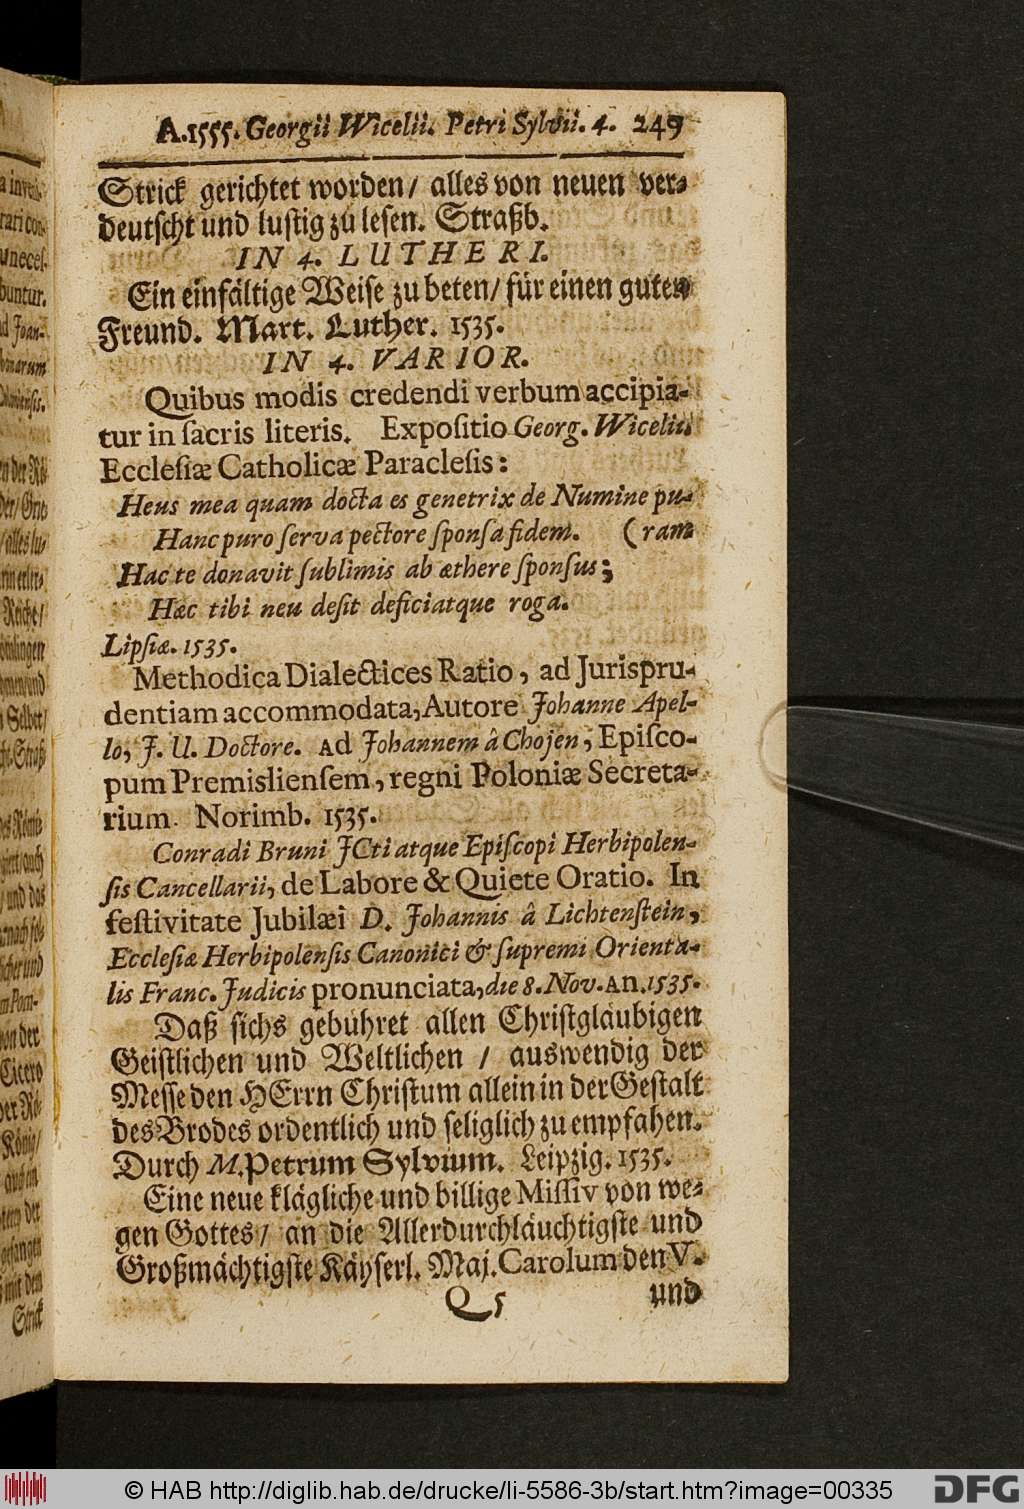 A. 1555. Georgii Wicelii. Petri Sylvii. 4. 249
Strick gerichtet worden/ alles von neuen ver-
deutscht und lustig zu lesen. Straßb.
IN 4. LUTHERI.
Ein einfältige Weise zu beten/ für einen guten
Freund. Mart. Luther. 1535.
IN 4. VARIOR.
Quibus modis credendi verbum accipia-
tur in ſacris literis. Expoſitio Georg. Wicelii.
Eccleſiæ Catholicæ Paracleſis:
Heus mea quam docta es genetrix de Numine pu-
Hanc puro ſerva pectore ſponſa fidem. (ram
Hac te donavit ſublimis ab æthere ſponſus;
Hæc tibi neu deſit deficiatque roga.
Lipſiæ. 1535.
Methodica Dialectices Ratio, ad Jurispru-
dentiam accommodata, Autore Johanne Apel-
lo, J. U. Doctore. Ad Johannem â Chojen, Epiſco-
pum Premislienſem, regni Poloniæ Secreta-
rium. Norimb. 1535.
Conradi Bruni JCti atque Epiſcopi Herbipolen-
ſis Cancellarii, de Labore & Quiete Oratio. In
feſtivitate Jubilæi D. Johannis â Lichtenſtein,
Eccleſiæ Herbipolenſis Canonici & ſupremi Orienta-
lis Franc. Judicis pronunciata, die 8. Nov. An. 1535.
Daß sichs gebühret allen Christgläubigen
Geistlichen und Weltlichen / auswendig der
Messe den HErrn Christum allein in der Gestalt
des Brodes ordentlich und seliglich zu empfahen.
Durch M. Petrum Sylvium. Leipzig. 1535.
Eine neue klägliche und billige Missiv von we-
gen Gottes/ an die Allerdurchläuchtigste und
Großmächtigste Käyserl. Maj. Carolum den V.
Q 5 und
© HAB http://diglib.hab.de/drucke/li-5586-3b/start.htm?image=00335
DFG